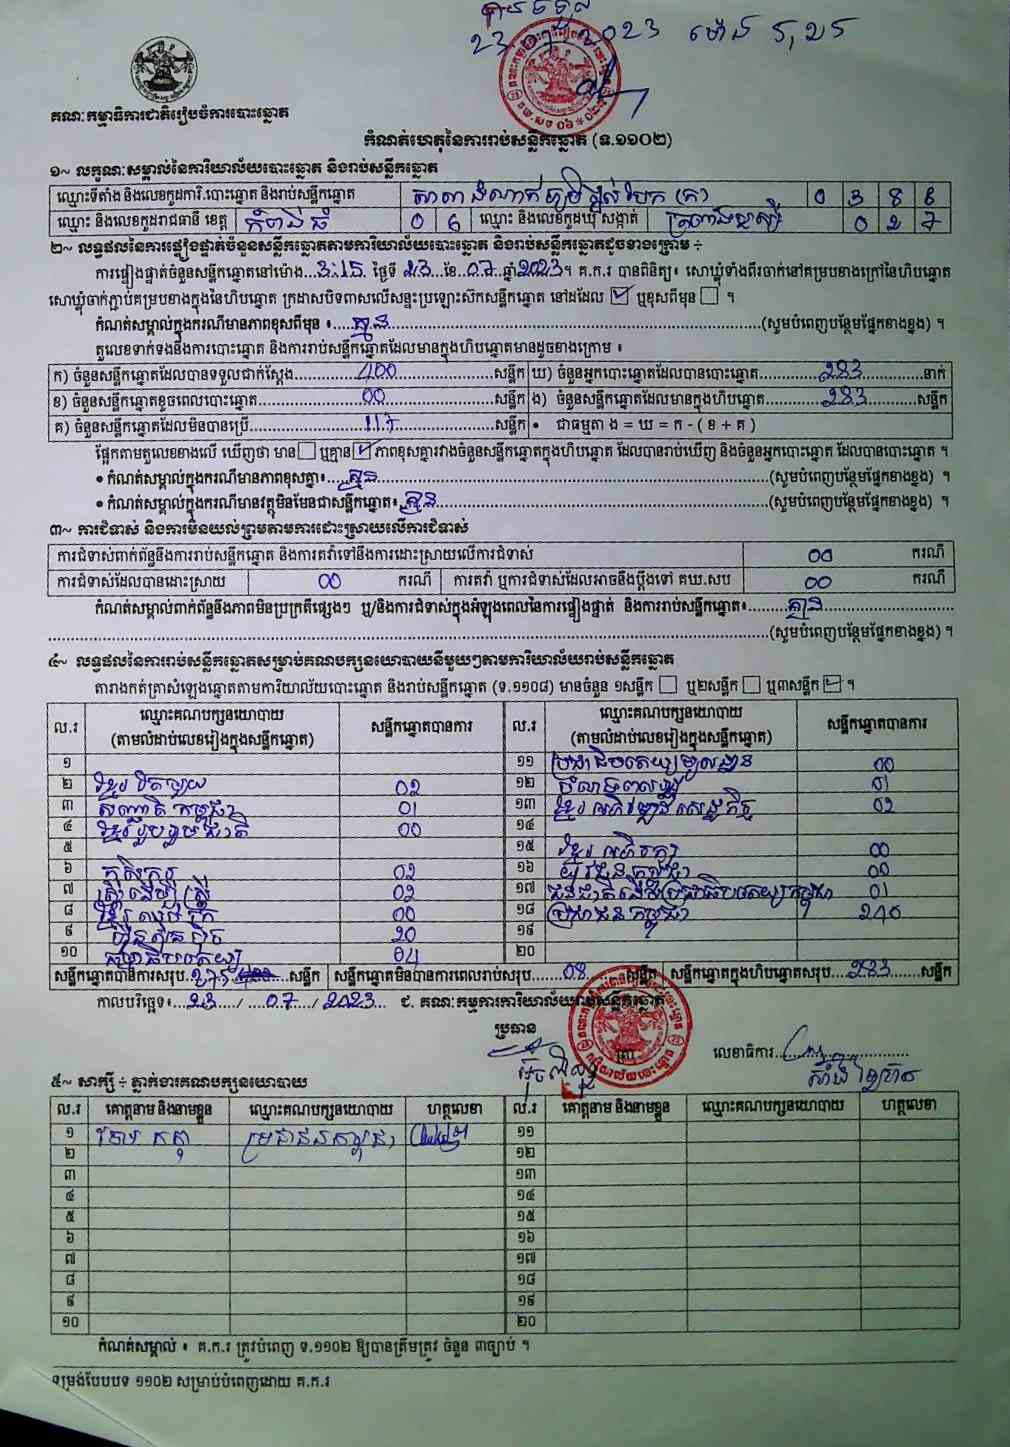 23 2023 ម៉ោង 5,25
គណៈកម្មាធិការជាតិរៀបចំការបោះឆ្នោត
កំណត់ហេតុនៃការរាប់សន្លឹកឆ្នោត (ទ.១១០២)
១~ លក្ខណៈសម្គាល់នៃការិយាល័យបោះឆ្នោត និងរាប់សន្លឹកឆ្នោត
ឈ្មោះទីតាំង និងលេខកូដការិ.បោះឆ្នោត និងរាប់សន្លឹកឆ្នោត 0 3 8 6
ឈ្មោះ និងលេខកូដរាជធានី ខេត្ត កំពង់ធំ 0 6 ឈ្មោះ និងលេខកូដឃុំ សង្កាត់ 0 2 7
២~ លទ្ធផលនៃការផ្ទៀងផ្ទាត់ចំនួនសន្លឹកឆ្នោតតាមការិយាល័យបោះឆ្នោត និងរាប់សន្លឹកឆ្នោតដូចខាងក្រោម ÷
ការផ្ទៀងផ្ទាត់ចំនួនសន្លឹកឆ្នោតនៅម៉ោង...3:15...ថ្ងៃទី...23...ខែ...07...ឆ្នាំ2023។ គ.ក.រ បានពិនិត្យ៖ សោឃ្លុំទាំងពីរចាក់នៅគម្របខាងក្រៅនៃហិបឆ្នោត
សោឃ្លុំចាក់ភ្ជាប់គម្របខាងក្នុងនៃហិបឆ្នោត ក្រដាសបិទពាសលើសន្ទះប្រឡោះស៊កសន្លឹកឆ្នោត នៅដដែល ☑ ឬខុសពីមុន ☐ ។
កំណត់សម្គាល់ក្នុងករណីមានភាពខុសពីមុន ៖....គ្មាន....(សូមបំពេញបន្ថែមផ្នែកខាងខ្នង) ។
តួលេខទាក់ទងនឹងការបោះឆ្នោត និងការរាប់សន្លឹកឆ្នោតដែលមានក្នុងហិបឆ្នោតមានដូចខាងក្រោម ៖
ក) ចំនួនសន្លឹកឆ្នោតដែលបានទទួលជាក់ស្តែង....400....សន្លឹក ឃ) ចំនួនអ្នកបោះឆ្នោតដែលបានបោះឆ្នោត....283....នាក់
ខ) ចំនួនសន្លឹកឆ្នោតខូចពេលបោះឆ្នោត....00....សន្លឹក ង) ចំនួនសន្លឹកឆ្នោតដែលមានក្នុងហិបឆ្នោត....283....សន្លឹក
គ) ចំនួនសន្លឹកឆ្នោតដែលមិនបានប្រើ....117....សន្លឹក • ជាធម្មតា ង = ឃ = ក - ( ខ + គ )
ផ្អែកតាមតួលេខខាងលើ ឃើញថា មាន ☐ ឬគ្មាន ☑ ភាពខុសគ្នារវាងចំនួនសន្លឹកឆ្នោតក្នុងហិបឆ្នោត ដែលបានរាប់ឃើញ និងចំនួនអ្នកបោះឆ្នោត ដែលបានបោះឆ្នោត ។
• កំណត់សម្គាល់ក្នុងករណីមានភាពខុសគ្នា៖....គ្មាន....(សូមបំពេញបន្ថែមផ្នែកខាងខ្នង) ។
• កំណត់សម្គាល់ក្នុងករណីមានវត្ថុមិនមែនជាសន្លឹកឆ្នោត៖....គ្មាន....(សូមបំពេញបន្ថែមផ្នែកខាងខ្នង) ។
៣~ ការជំទាស់ និងការមិនយល់ព្រមតាមការដោះស្រាយលើការជំទាស់
ការជំទាស់ពាក់ព័ន្ធនឹងការរាប់សន្លឹកឆ្នោត និងការតវ៉ាទៅនឹងការដោះស្រាយលើការជំទាស់ 00 ករណី
ការជំទាស់ដែលបានដោះស្រាយ 00 ករណី ការតវ៉ា ឬការជំទាស់ដែលអាចនឹងប្តឹងទៅ គឃ.សប 00 ករណី
កំណត់សម្គាល់ពាក់ព័ន្ធនឹងភាពមិនប្រក្រតីផ្សេងៗ ឬ/និងការជំទាស់ក្នុងអំឡុងពេលនៃការផ្ទៀងផ្ទាត់ និងការរាប់សន្លឹកឆ្នោត៖....គ្មាន....
....(សូមបំពេញបន្ថែមផ្នែកខាងខ្នង) ។
៤~ លទ្ធផលនៃការរាប់សន្លឹកឆ្នោតសម្រាប់គណបក្សនយោបាយនីមួយៗតាមការិយាល័យរាប់សន្លឹកឆ្នោត
តារាងកត់ត្រាសំឡេងឆ្នោតតាមការិយាល័យបោះឆ្នោត និងរាប់សន្លឹកឆ្នោត (ទ.១១០៨) មានចំនួន ១សន្លឹក ☐ ឬ២សន្លឹក ☐ ឬ៣សន្លឹក ☑ ។
ល.រ ឈ្មោះគណបក្សនយោបាយ (តាមលំដាប់លេខរៀងក្នុងសន្លឹកឆ្នោត) សន្លឹកឆ្នោតបានការ ល.រ ឈ្មោះគណបក្សនយោបាយ (តាមលំដាប់លេខរៀងក្នុងសន្លឹកឆ្នោត) សន្លឹកឆ្នោតបានការ
១ ១១ ប្រជាធិបតេយ្យមូលដ្ឋាន 00
២ 02 ១២ 01
៣ សញ្ជាតិកម្ពុជា 01 ១៣ ខ្មែរអភិវឌ្ឍន៍សេដ្ឋកិច្ច 02
៤ ខ្មែររួបរួមជាតិ 00 ១៤
៥ ១៥ ខ្មែរអភិរក្ស 00
៦ កសិករ 02 ១៦ យុវជនកម្ពុជា 00
៧ ស្ត្រីដើម្បីស្ត្រី 02 ១៧ 01
៨ 00 ១៨ ប្រជាជនកម្ពុជា 240
៩ ហ៊្វុនស៊ិនប៉ិច 20 ១៩
១០ 04 ២០
សន្លឹកឆ្នោតបានការសរុប.275....សន្លឹក សន្លឹកឆ្នោតមិនបានការពេលរាប់សរុប....08....សន្លឹក សន្លឹកឆ្នោតក្នុងហិបឆ្នោតសរុប...283....សន្លឹក
កាលបរិច្ឆេទ៖...23..../....07..../2023... ជ. គណៈកម្មការការិយាល័យរាប់សន្លឹកឆ្នោត
ប្រធាន
ត្រា លេខាធិការ....
៥~ សាក្សី ÷ ភ្នាក់ងារគណបក្សនយោបាយ
ល.រ គោត្តនាម និងនាមខ្លួន ឈ្មោះគណបក្សនយោបាយ ហត្ថលេខា ល.រ គោត្តនាម និងនាមខ្លួន ឈ្មោះគណបក្សនយោបាយ ហត្ថលេខា
១ ប្រជាជនកម្ពុជា ១១
២ ១២
៣ ១៣
៤ ១៤
៥ ១៥
៦ ១៦
៧ ១៧
៨ ១៨
៩ ១៩
១០ ២០
កំណត់សម្គាល់ ៖ គ.ក.រ ត្រូវបំពេញ ទ.១១០២ ឱ្យបានត្រឹមត្រូវ ចំនួន ៣ច្បាប់ ។
ទម្រង់បែបបទ ១១០២ សម្រាប់បំពេញដោយ គ.ក.រ